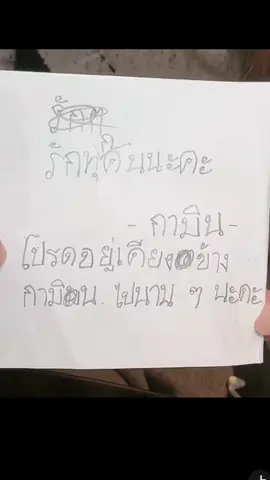 รักทุคนนะคะ
- กามิน -
โปรดอยู่เคียงข้าง
กามิน. ไปนาน ๆ นะคะ